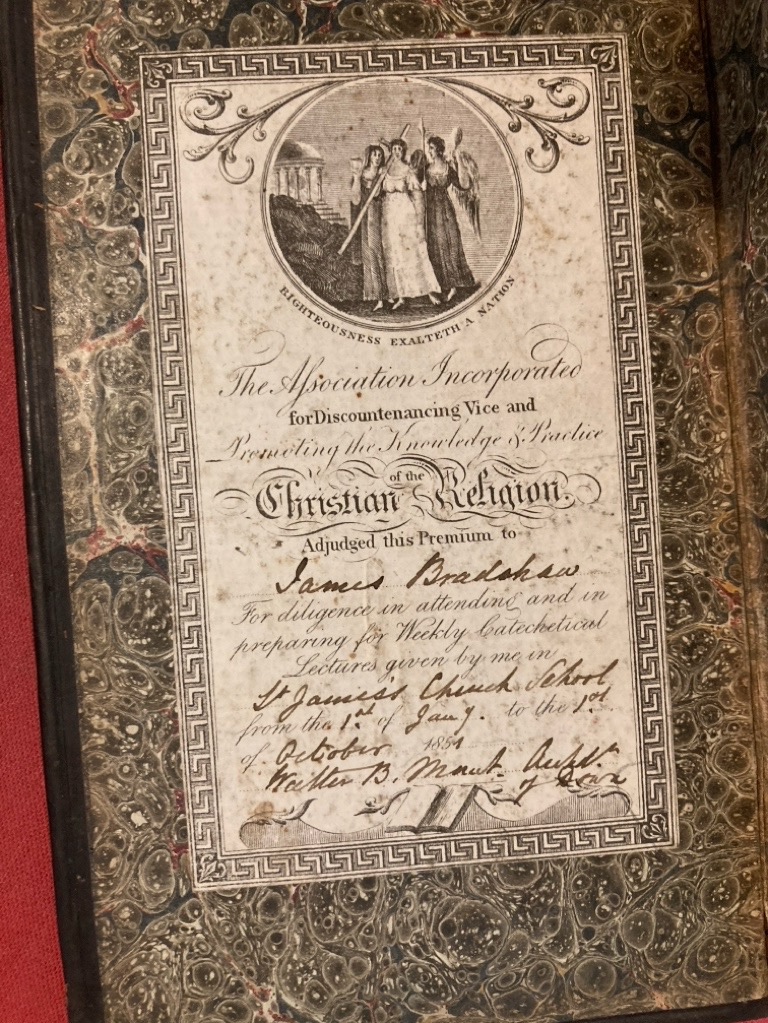 RIGHTEOUSNESS EXALTETH A NATION
The Aſsociation Incorporated
for Discountenancing Vice and
Promoting the Knowledge & Practice
of the
Christian Religion.
Adjudged this Premium to
James Bradshaw
For diligence in attending and in
preparing for Weekly Catechetical
Lectures given by me in
St James's Church School
from the 1st of Jany. to the 1st
of October 1851
Walter B. Mant. of Down